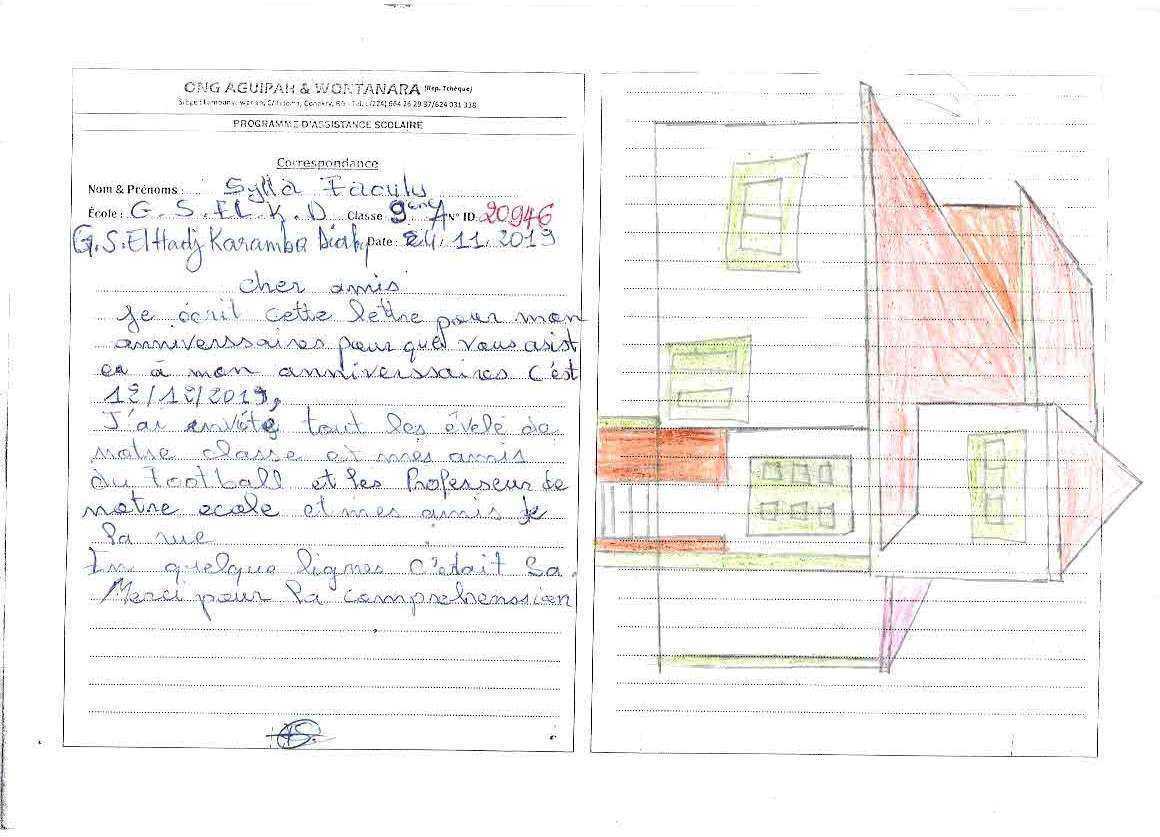 ONG AGUIPAH & WONTANARA (Rep. Tchèque)
PROGRAMME D'ASSISTANCE SCOLAIRE
Correspondance
Nom & Prénoms : Sylla
École : G.S.EL.K.D Classe 9ème A N° ID 20946
G.S. El Hadj Karamba Date : 24.11.2019
cher amis
Je écrit cette lettre pour mon
anniverssaires pour que vous asist
ea à mon anniverssaires c'est
12/12/2019,
J'ai invité tout les évelé de
notre classe et més amis
du Football et les Professeur de
notre ecole et mes amis de
la rue
En quelque lignes c'était sa.
Merci pour la comprehenssion